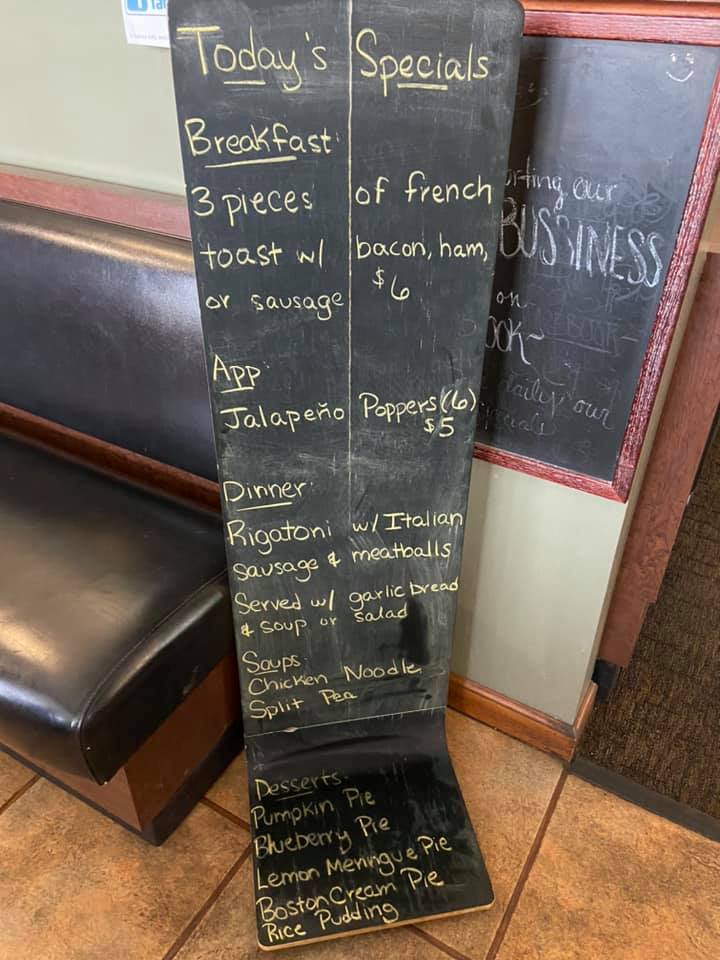 Today's Specials
Breakfast:
3 pieces of french
toast w/ bacon, ham,
or sausage $6
App:
Jalapeño Poppers (6)
$5
Dinner:
Rigatoni w/ Italian
sausage & meatballs
Served w/ garlic bread
& soup or salad
Soups:
Chicken Noodle
Split Pea
Desserts:
Pumpkin Pie
Blueberry Pie
Lemon Meringue Pie
Boston Cream Pie
Rice Pudding
our
BUSSINESS
on
daily our